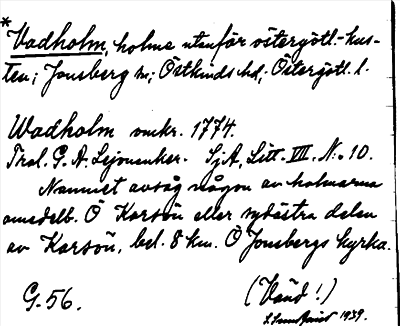 *Vadholm, holme utanför östergötl.-kus-
ten; Jonsberg sn; Östkinds hd, Östergötl. l.
Wadholm omkr. 1774.
Trol. G. A. Lejonanker. SjA, Litt. VIII. N:o 10.
Namnet avsåg någon av holmarna
omedelb. Ö Karsön eller sydöstra delen
av Karsön, bel. 8 km. Ö Jonsbergs kyrka.
G. 56.
(Vänd!)
1939.